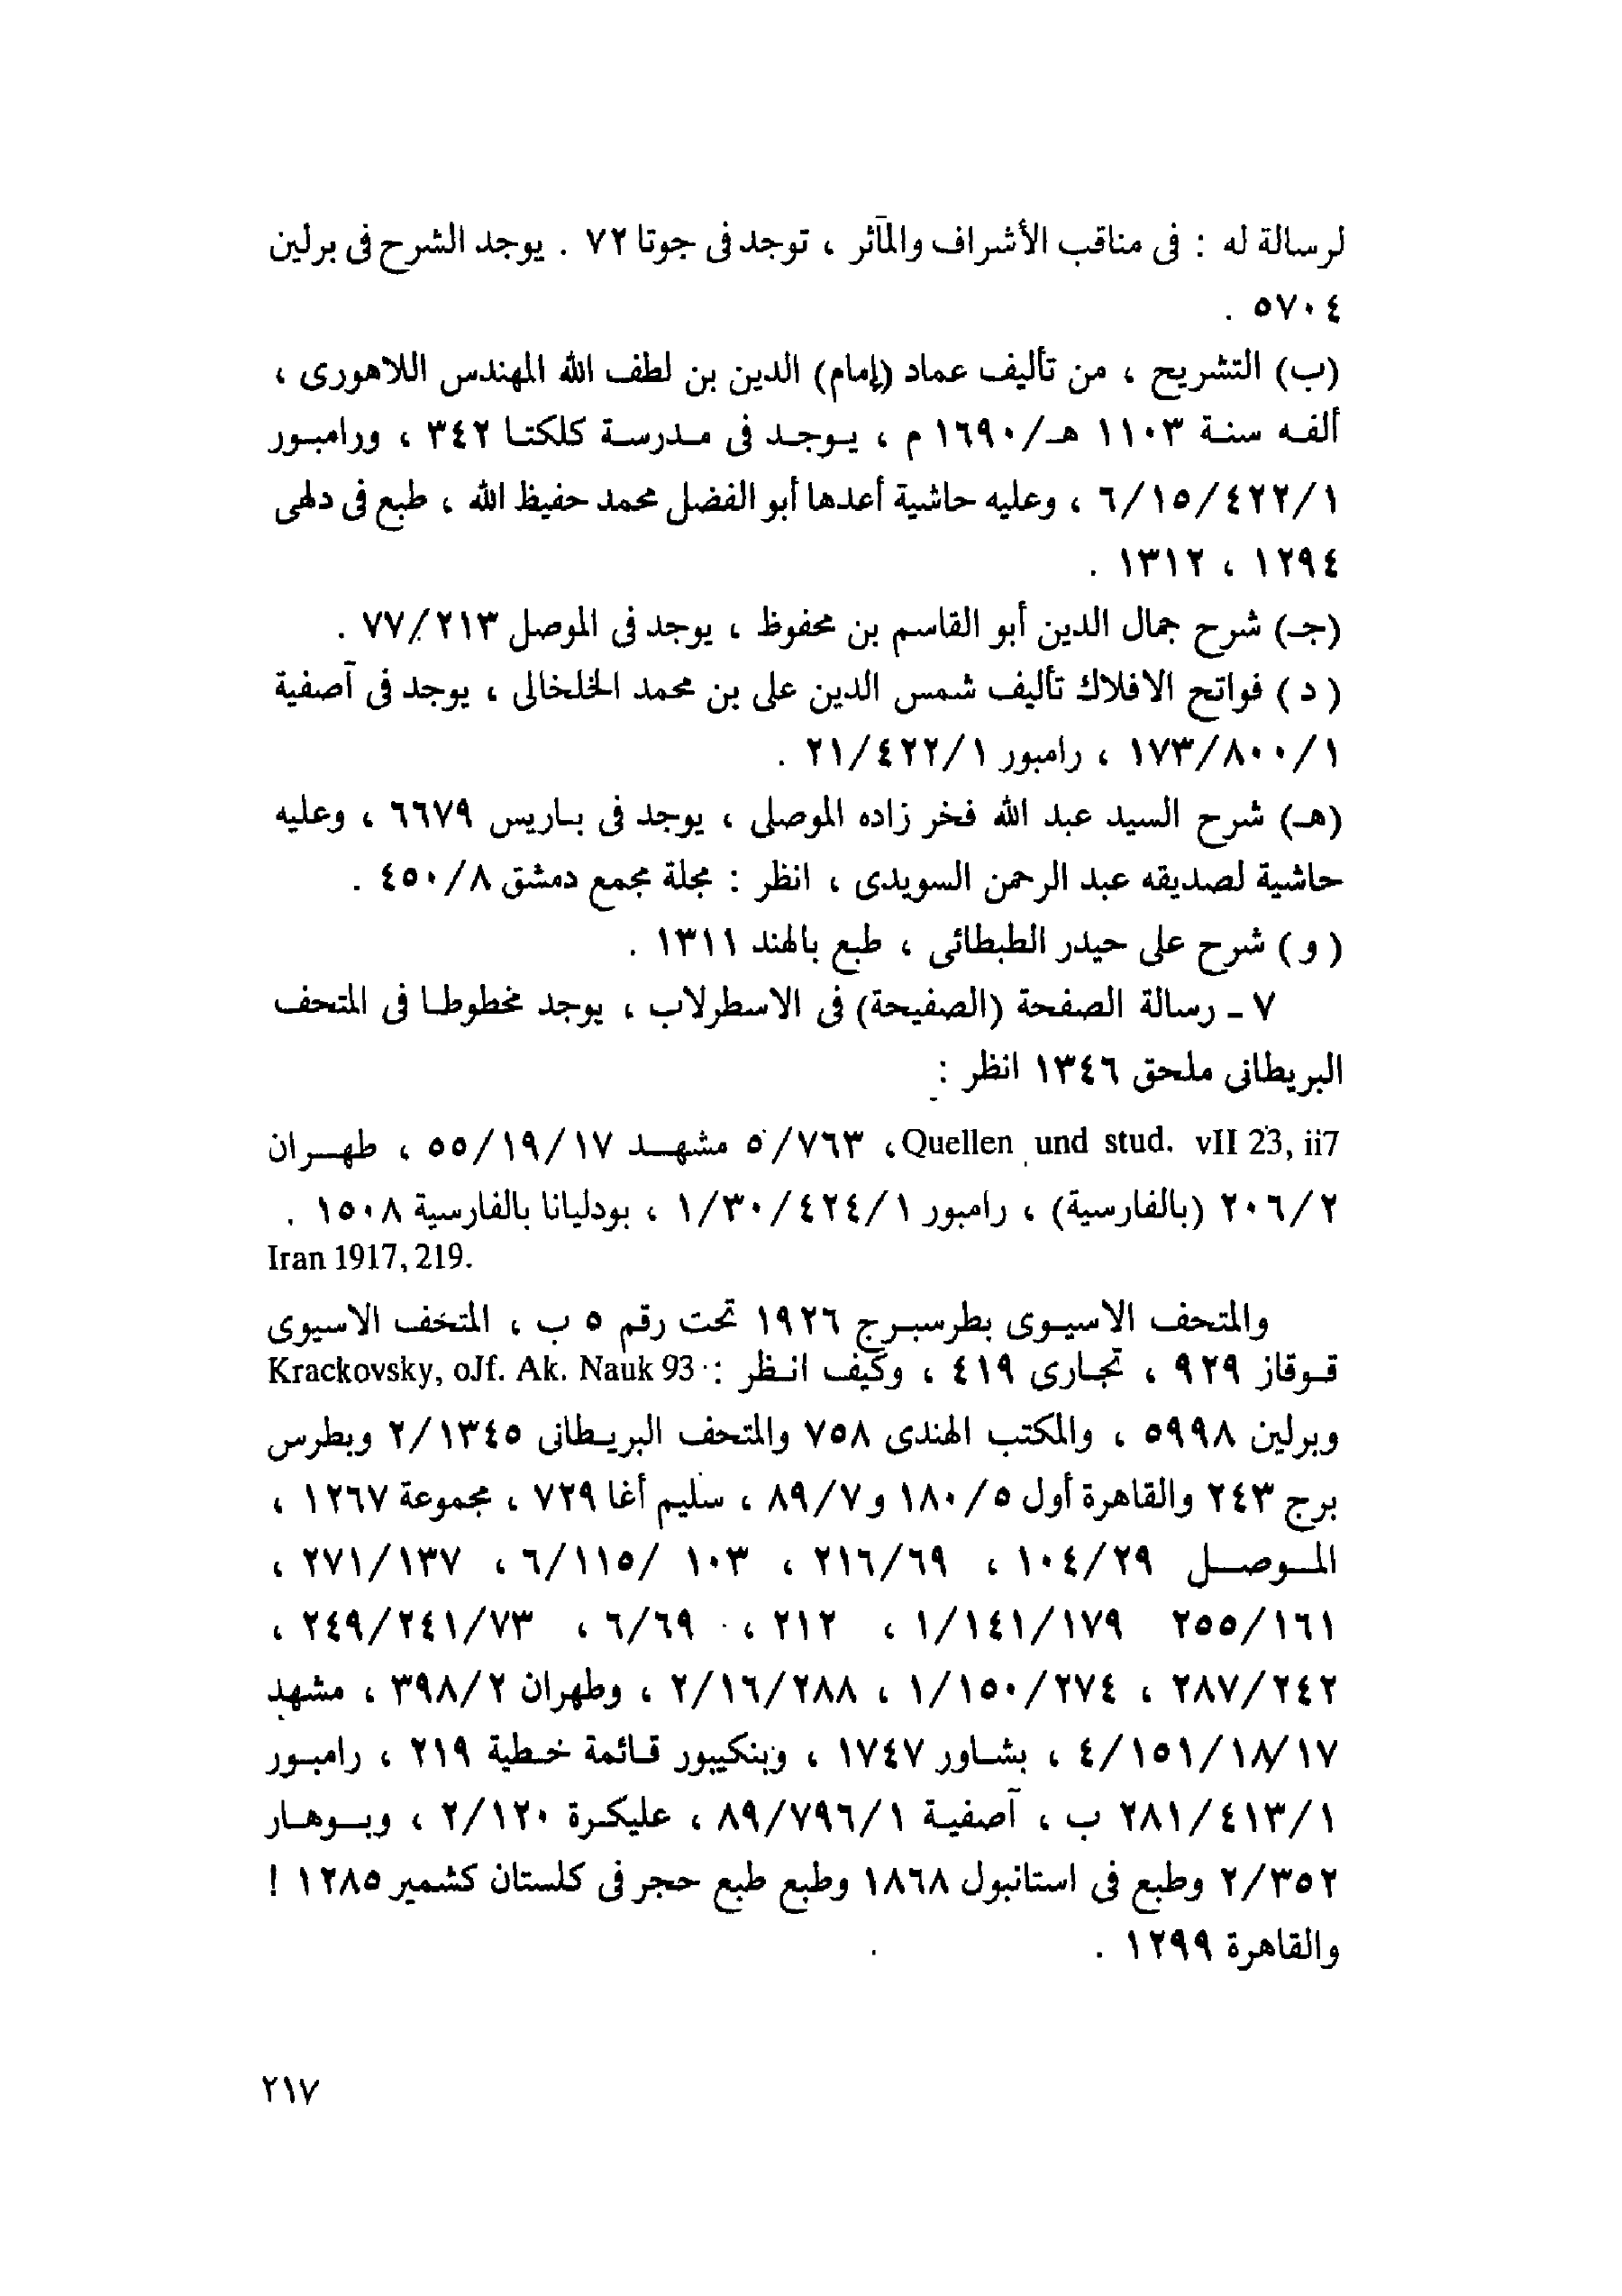 لرسالة له : فى مناقب الأشراف والمآثر ، توجد فى جوتا ٧٢ . يوجد الشرح فى برلين
٥٧٠٤ .
(ب) التشريح ، من تأليف عماد (إمام) الدين بن لطف الله المهندس اللاهورى ،
ألفه سنة ١١٠٣ هـ/١٦٩٠ م ، يوجد فى مدرسة كلكتا ٣٤٢ ، ورامبور
٦/١٥/٤٢٢/١ ، وعليه حاشية أعدها أبو الفضل محمد حفيظ الله ، طبع فى دلهى
١٢٩٤ ، ١٣١٢ .
(جـ) شرح جمال الدين أبو القاسم بن محفوظ ، يوجد فى الموصل ٧٧/٢١٣ .
( د ) فواتح الافلاك تأليف شمس الدين على بن محمد الخلخالى ، يوجد فى آصفية
١٧٣/٨٠٠/١ ، رامبور ٢١/٤٢٢/١ .
(هـ) شرح السيد عبد الله فخر زاده الموصلى ، يوجد فى باريس ٦٦٧٩ ، وعليه
حاشية لصديقه عبد الرحمن السويدى ، انظر : مجلة مجمع دمشق ٤٥٠/٨ .
( و ) شرح على حيدر الطبطائى ، طبع بالهند ١٣١١ .
٧ ـ رسالة الصفحة (الصفيحة) فى الاسطرلاب ، يوجد مخطوطا فى المتحف
البريطانى ملحق ١٣٤٦ انظر :
Quellen und stud. vII 23, ii7، ٥/٧٦٣ مشهد ٥٥/١٩/١٧ ، طهران
٢٠٦/٢ (بالفارسية) ، رامبور ١/٣٠/٤٢٤/١ ، بودليانا بالفارسية ١٥٠٨ .
Iran 1917, 219.
والمتحف الاسيوى بطرسبرج ١٩٢٦ تحت رقم ٥ ب ، المتخف الاسيوى
قوقاز ٩٢٩ ، تجارى ٤١٩ ، وكيف انظر : Krackovsky, oJf. Ak. Nauk 93
وبرلين ٥٩٩٨ ، والمكتب الهندى ٧٥٨ والمتحف البريطانى ٢/١٣٤٥ وبطرس
برج ٢٤٣ والقاهرة أول ١٨٠/٥ و ٨٩/٧ ، سليم أغا ٧٢٩ ، مجموعة ١٢٦٧ ،
الموصل ١٠٤/٢٩ ، ٢١٦/٦٩ ، ١٠٣ /٦/١١٥ ، ٢٧١/١٣٧ ،
٢٥٥/١٦١ ١/١٤١/١٧٩ ، ٢١٢ ، ٦/٦٩ ، ٢٤٩/٢٤١/٧٣ ،
٢٨٧/٢٤٢ ، ١/١٥٠/٢٧٤ ، ٢/١٦/٢٨٨ ، وطهران ٣٩٨/٢ ، مشهد
٤/١٥١/١٨/١٧ ، بشاور ١٧٤٧ ، وبنكيبور قائمة خطية ٢١٩ ، رامبور
٢٨١/٤١٣/١ ب ، آصفية ٨٩/٧٩٦/١ ، عليكرة ٢/١٢٠ ، وبوهار
٢/٣٥٢ وطبع فى استانبول ١٨٦٨ وطبع طبع حجر فى كلستان كشمير ١٢٨٥ !
والقاهرة ١٢٩٩ .
٢١٧